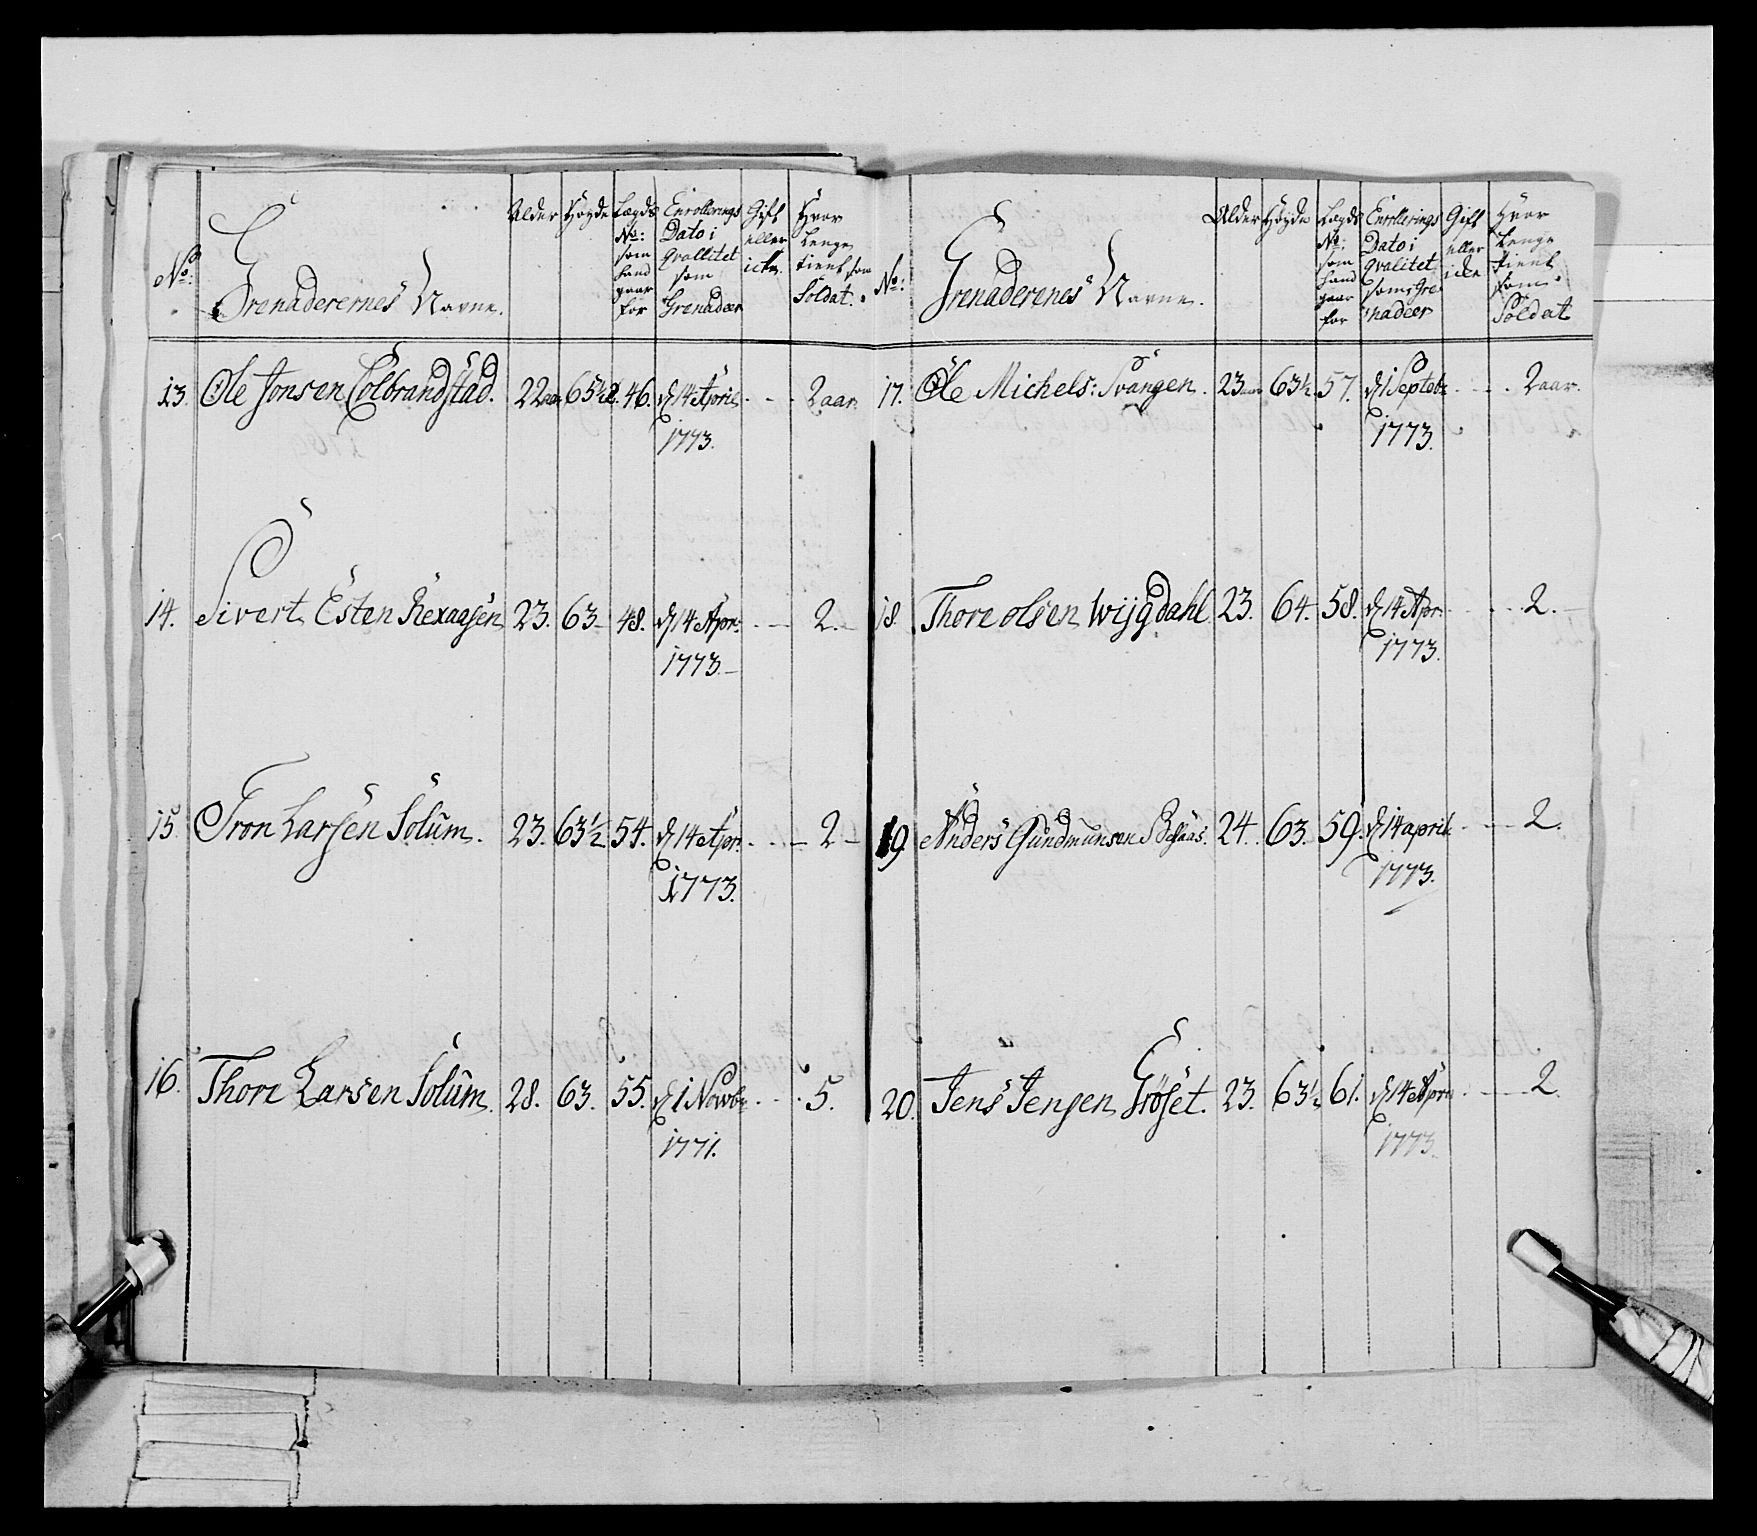 No: Grenaderernes Navne. Alder Høyde Lægds No: som hand gaar for Enrollerings Dato i Qvallitet som Grenadeer Gift eller icke. Hvor Lenge tient som Soldat.
13. Ole Jonsen Colbrandstad. 22 aar 65 1/2 46. d 14 April 1773. - - - 2 aar.
14. Sivert Esten Rexaasen 23. 63 48. d 14 Apr: 1773. - - - 2.
15. Tron Larsen Solum. 23. 63 1/2 54. d 14 Apr: 1773. - - - 2
16. Thore Larsen Solum. 28. 63. 55. d 1 Novbr 1771. - - - 5.
No: Grenaderenes Navne. Alder Høyde Lægds No: som hand gaar for Enrollerings Dato i Qvalitet som Grenadeer Gift eller icke Hvor Lenge tient som Soldat
17. Ole Michels: Svangen. 23 aar 63 1/2. 57. d 1 Septebr 1773. - - - 2 aar.
18. Thore olsen Wijgdahl 23. 64. 58. d 14 Apr: 1773. - - - 2.
19 Anders Gundmunsen 24. 63. 59. d 14 april. 1773. - - - 2.
20. Jens Jensen Grøset. 23. 63 1/2 61. d 14 Apri 1773. - - - 2.